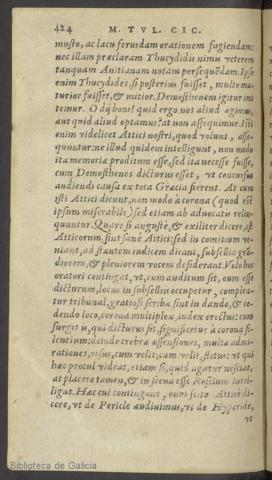 424 M. TVL. CIC.
musto, ac lacu feruidam orationem fugiendam:
nec illam præclaram Thucydidis nimis veterem
tanquam Anitianam notam persequēdam. Ipse
enim Thucydides, si posterius fuisset, multo ma-
turior fuisset, & mitior. Demosthenem igitur imi
temur. O dij boni! quid ergo nos aliud agimus,
aut quid aliud optamus? at non assequimur. Isti
enim videlicet Attici nostri, quod volunt, asse-
quuntur: ne illud quidem intelligunt, non modo
ita memoriæ proditum esse, sed ita necesse fuisse,
cum Demosthenes dicturus esset, vt concursus
audiendi causa ex tota Græcia fierent. At cum
isti Attici dicunt, non modò à corona (quod est
ipsum miserabile) sed etiam ab aduocatis relin-
quuntur. Quare si angustè, & exiliter dicere, est
Atticorum, sint sanè Attici: sed in comitium ve-
niant, ad stantem iudicem dicant, subsellia grā-
diorem, & pleniorem vocem desiderant. Volo hoc
oratori contingat, vt, cum auditum sit, eum esse
dicturum, locus in subselliis occupetur, complea-
tur tribunal, gratiosi scribæ sint in dando, & ce-
dendo loco, corona multiplex, iudex erectus: cum
surgit is, qui dicturus sit, significetur à corona si-
lentium: deinde crebræ assensiones, multæ admi-
rationes, risus, cum velit; cum velit, fletus: vt qui
hæc procul videat, etiam si, quid agatur nesciat,
at placere tamen, & in scena esse Roscium intel-
ligat. Hæc cui contingant, eum scito Atticè di-
cere, vt de Pericle audiuimus, vt de Hyperide,
vt
Biblioteca de Galicia